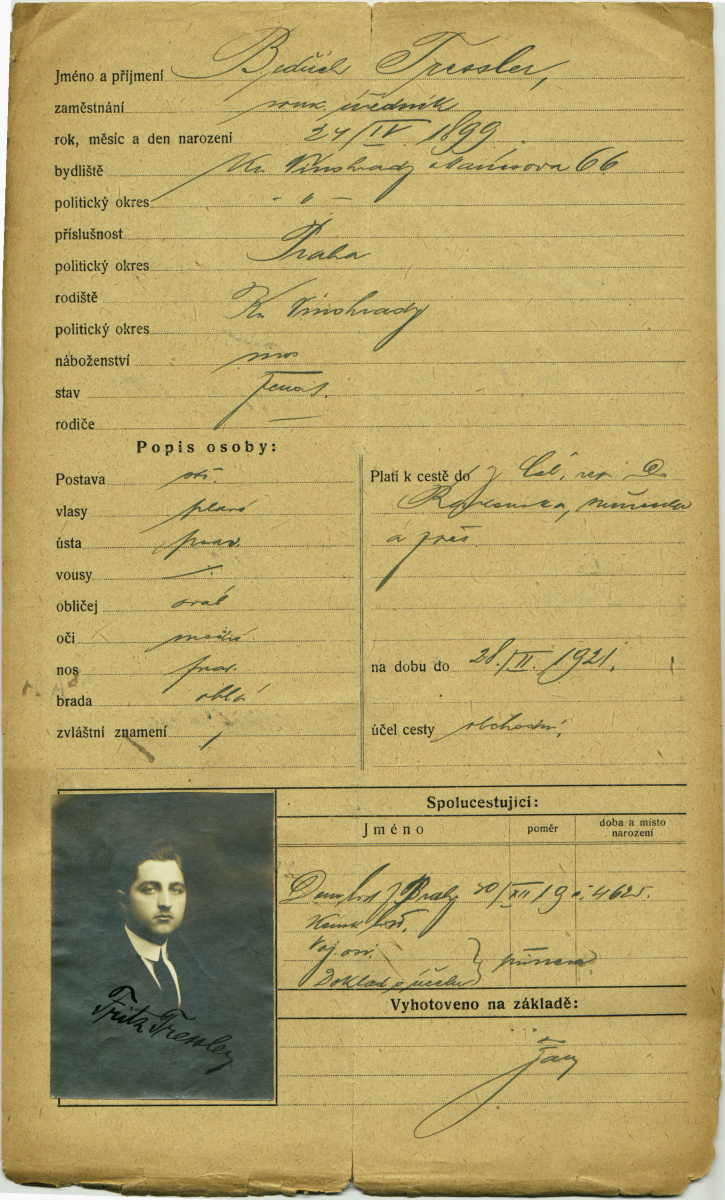 Jméno a příjmení Bedřich Tressler,
zaměstnání souk. úředník
rok, měsíc a den narození 24/IV. 1899
bydliště Kr. Vinohrady Mánesova 66
politický okres - " -
příslušnost
politický okres Praha
rodiště Kr. Vinohrady
politický okres
náboženství mos
stav ženat.
rodiče —
Popis osoby:
Postava stř.
vlasy plavé
ústa prav.
vousy
obličej ovál
oči modré
nos prav.
brada oblá
zvláštní znamení /
Platí k cestě do
Rakouska, Německa
a zpět
na dobu do 28./II. 1921.
účel cesty obchodní,
Spolucestující:
Jméno poměr doba a místo narození
Dom. list z Prahy 20/XII 19
Voj.
Doklad o účelu
Vyhotoveno na základě:
Fritz Tressler